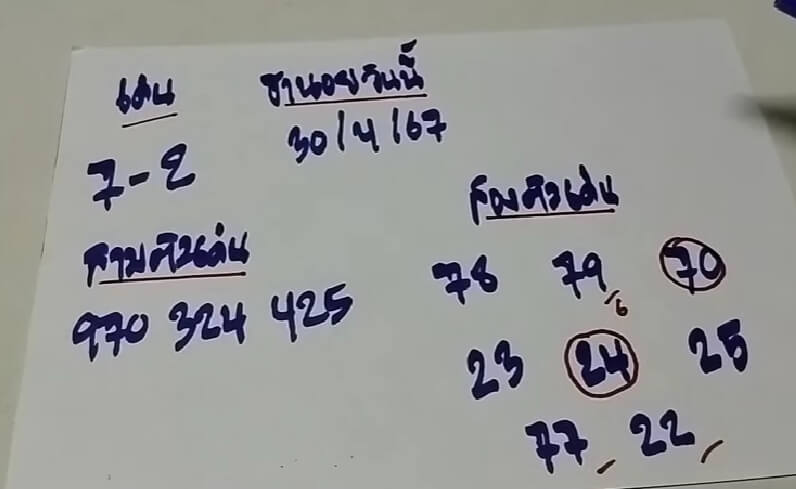 เด่น ฮานอยวันนี้
30/4/67
7-2
สามตัวเด่น
970 324 425
สองตัวเด่น
78 79 70
6
23 24 25
77 22